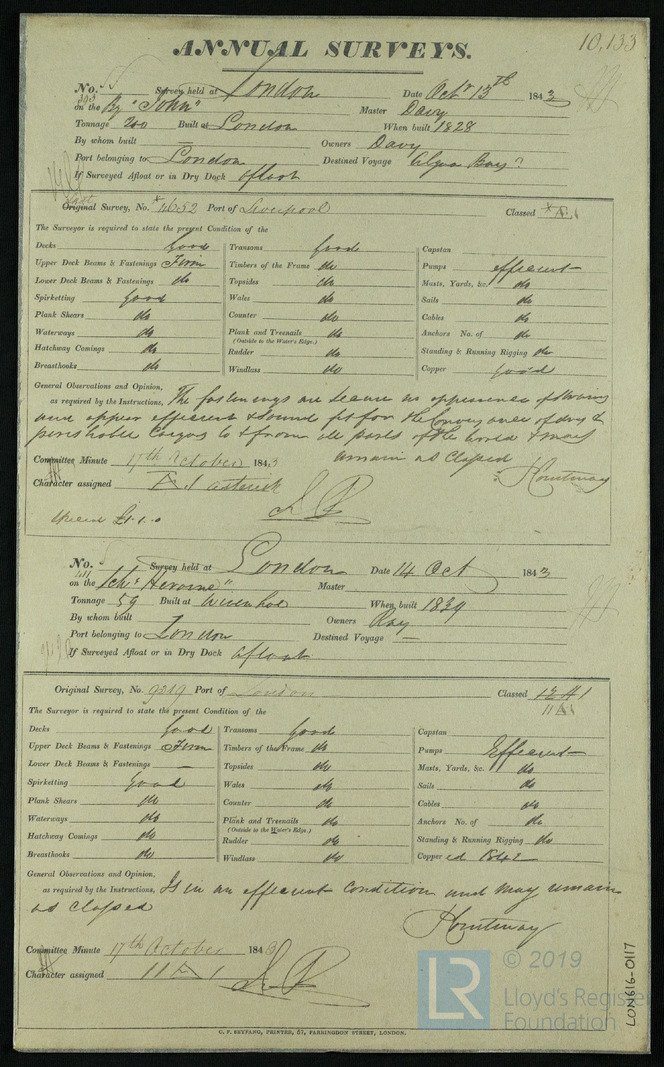 10,133
ANNUAL SURVEYS.
No. Survey held at London Date Octr 13th 1843
on the Bg "John" Master Davy
Tonnage 200 Built at London When built 1828
By whom built — Owners Davy
Port belonging to London Destined Voyage Algoa Bay?
If Surveyed Afloat or in Dry Dock Afloat
Last
Original Survey, No. * 4652 Port of Liverpool Classed
The Surveyor is required to state the present Condition of the
Decks Good Transoms Good Capstan
Upper Deck Beams & Fastenings Firm Timbers of the Frame do Pumps efficient
Lower Deck Beams & Fastenings do Topsides do Masts, Yards, &c. do
Spirketting Good Wales do Sails do
Plank Shears do Counter do Cables do
Waterways do Plank and Treenails do Anchors No. of do
(Outside to the Water's Edge.)
Hatchway Comings do Rudder do Standing & Running Rigging do
Breasthooks do Windlass do Copper good
General Observations and Opinion,
as required by the Instructions, The fastenings are secure no appearance of straining
and appear efficient & sound fit for the Conveyance of dry &
perishable Cargos to & from all parts of the world & may
remain as Classed
Committee Minute 17th October 1843
Character assigned 1 asterisk
Courtenay
£1.1.0
No. Survey held at London Date 14 Oct 1843
on the Schr "Heroine" Master
Tonnage 59 Built at Wivenhoe When built 1839
By whom built Owners Ray
Port belonging to London Destined Voyage —
If Surveyed Afloat or in Dry Dock Afloat
Original Survey, No. 9219 Port of London Classed 12 A 1
11 A 1
The Surveyor is required to state the present Condition of the
Decks Good Transoms Good Capstan
Upper Deck Beams & Fastenings Firm Timbers of the Frame do Pumps Efficient
Lower Deck Beams & Fastenings — Topsides do Masts, Yards, &c. do
Spirketting Good Wales do Sails do
Plank Shears do Counter do Cables do
Waterways do Plank and Treenails do Anchors No. of do
(Outside to the Water's Edge.)
Hatchway Comings do Rudder do Standing & Running Rigging do
Breasthooks do Windlass do Copper ed 1842
General Observations and Opinion,
as required by the Instructions, Is in an efficient condition and may remain
as Classed
Courtenay
Committee Minute 17th October 1843
Character assigned 11 A 1
C. F. SEYFANG, PRINTER, 57, FARRINGDON STREET, LONDON.
LR
© 2019
Lloyd's Register
Foundation
LON616-0117